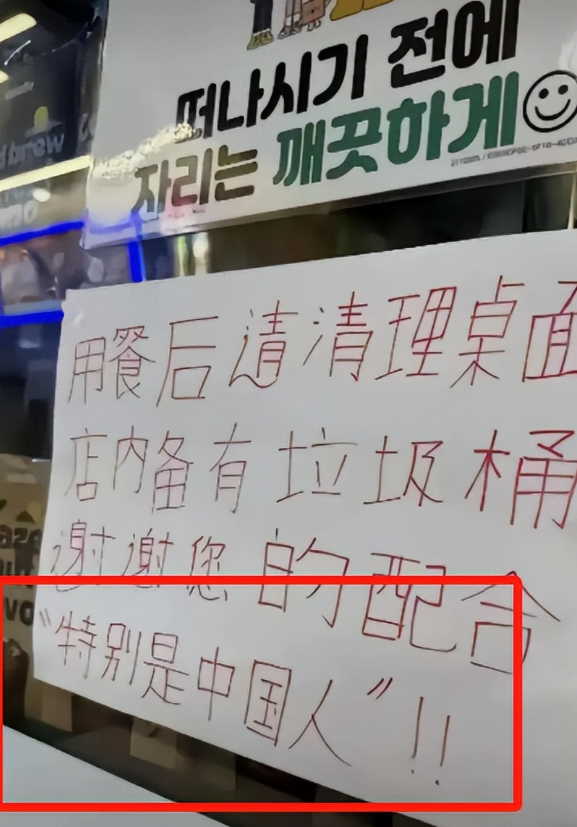 떠나시기 전에
자리는 깨끗하게
用餐后请清理桌面
店内备有垃圾桶
谢谢您的配合
"特别是中国人"!!